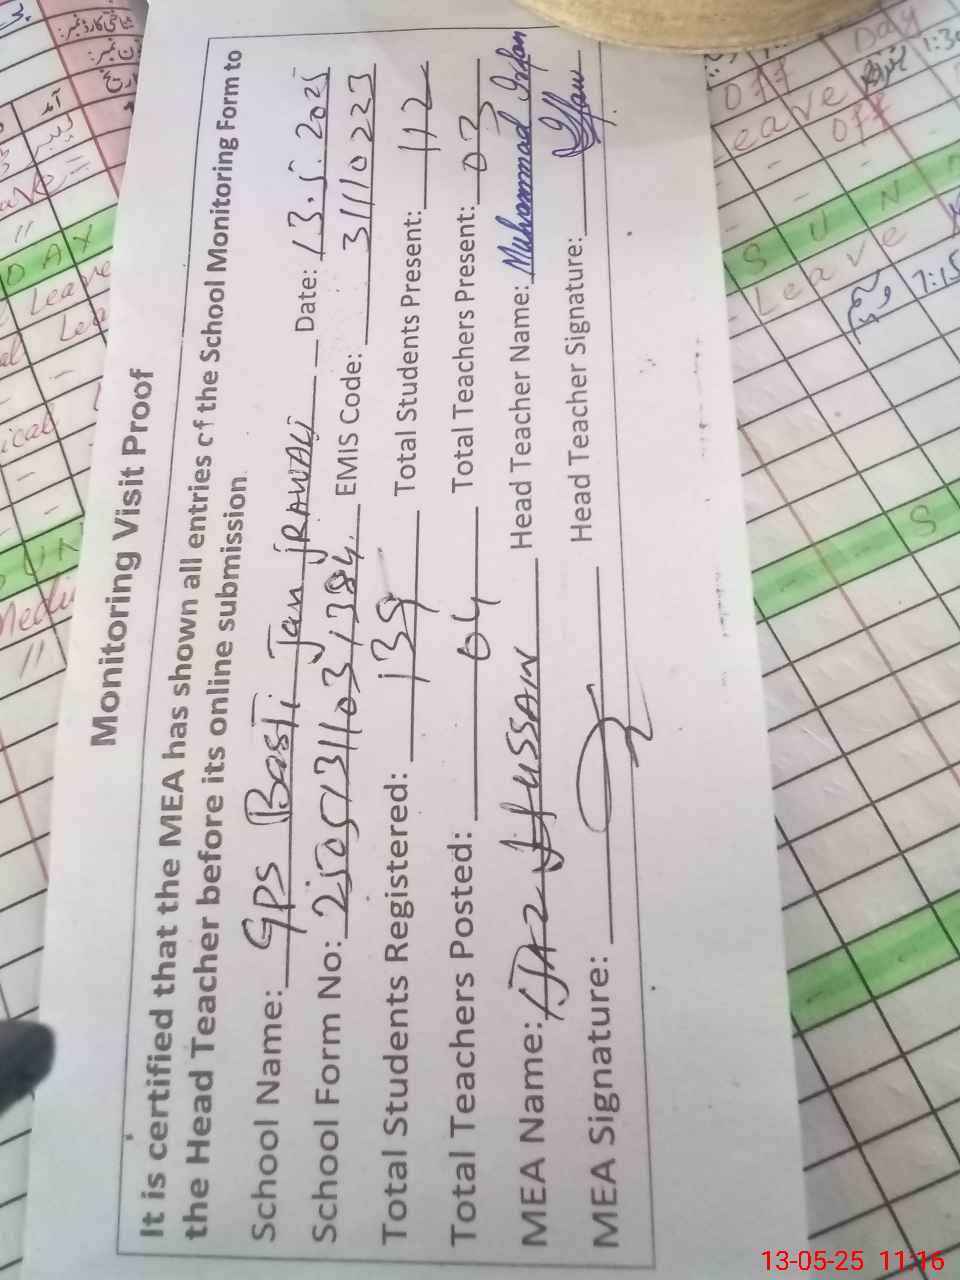 Monitoring Visit Proof
It is certified that the MEA has shown all entries of the School Monitoring Form to
the Head Teacher before its online submission
School Name: GPS Basti Jan jRAWALi Date: 13.5.2025
School Form No: 250513110311384 EMIS Code: 31110223
Total Students Registered: 139 Total Students Present: 112
Total Teachers Posted: 04 Total Teachers Present: 03
MEA Name: IJAZ HUSSAIN Head Teacher Name: Muhammad Irfan
MEA Signature: Head Teacher Signature: Irfan
Day
Off
Leave
Off
S U N
Leave
7:15
S
DAY
Leave
Lea
ical
Medi
13-05-25 11:16